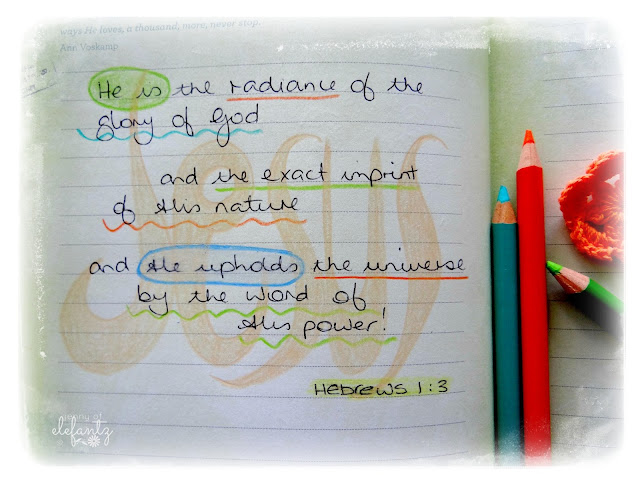 ways He loves, a thousand, more, never stop.
Ann Voskamp
He is the radiance of the
glory of God
and the exact imprint
of His nature
and He upholds the universe
by the word of
His power!
Hebrews 1:3
jenny of
elefantz